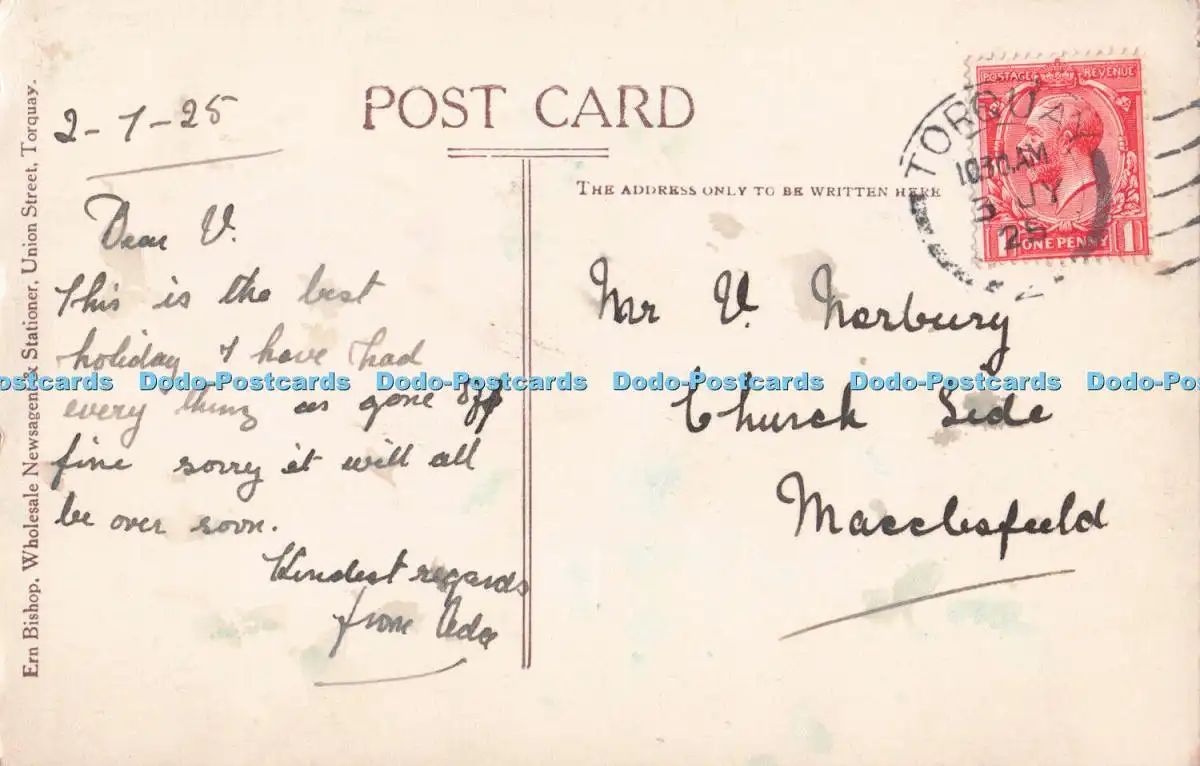 POST CARD
THE ADDRESS ONLY TO BE WRITTEN HERE
Ern Bishop, Wholesale Newsagent & Stationer, Union Street, Torquay.
2-7-25
Dear V.
This is the best
holiday I have had
every thing as gone off
fine sorry it will all
be over soon.
Kindest regards
from Ada
POSTAGE REVENUE
ONE PENNY
1 1
TORQUAY
10 30 AM
3 JY
25
Mr V. Norbury
Church Side
Macclesfield
ostcards Dodo-Postcards Dodo-Postcards Dodo-Postcards Dodo-Postcards Dodo-Post